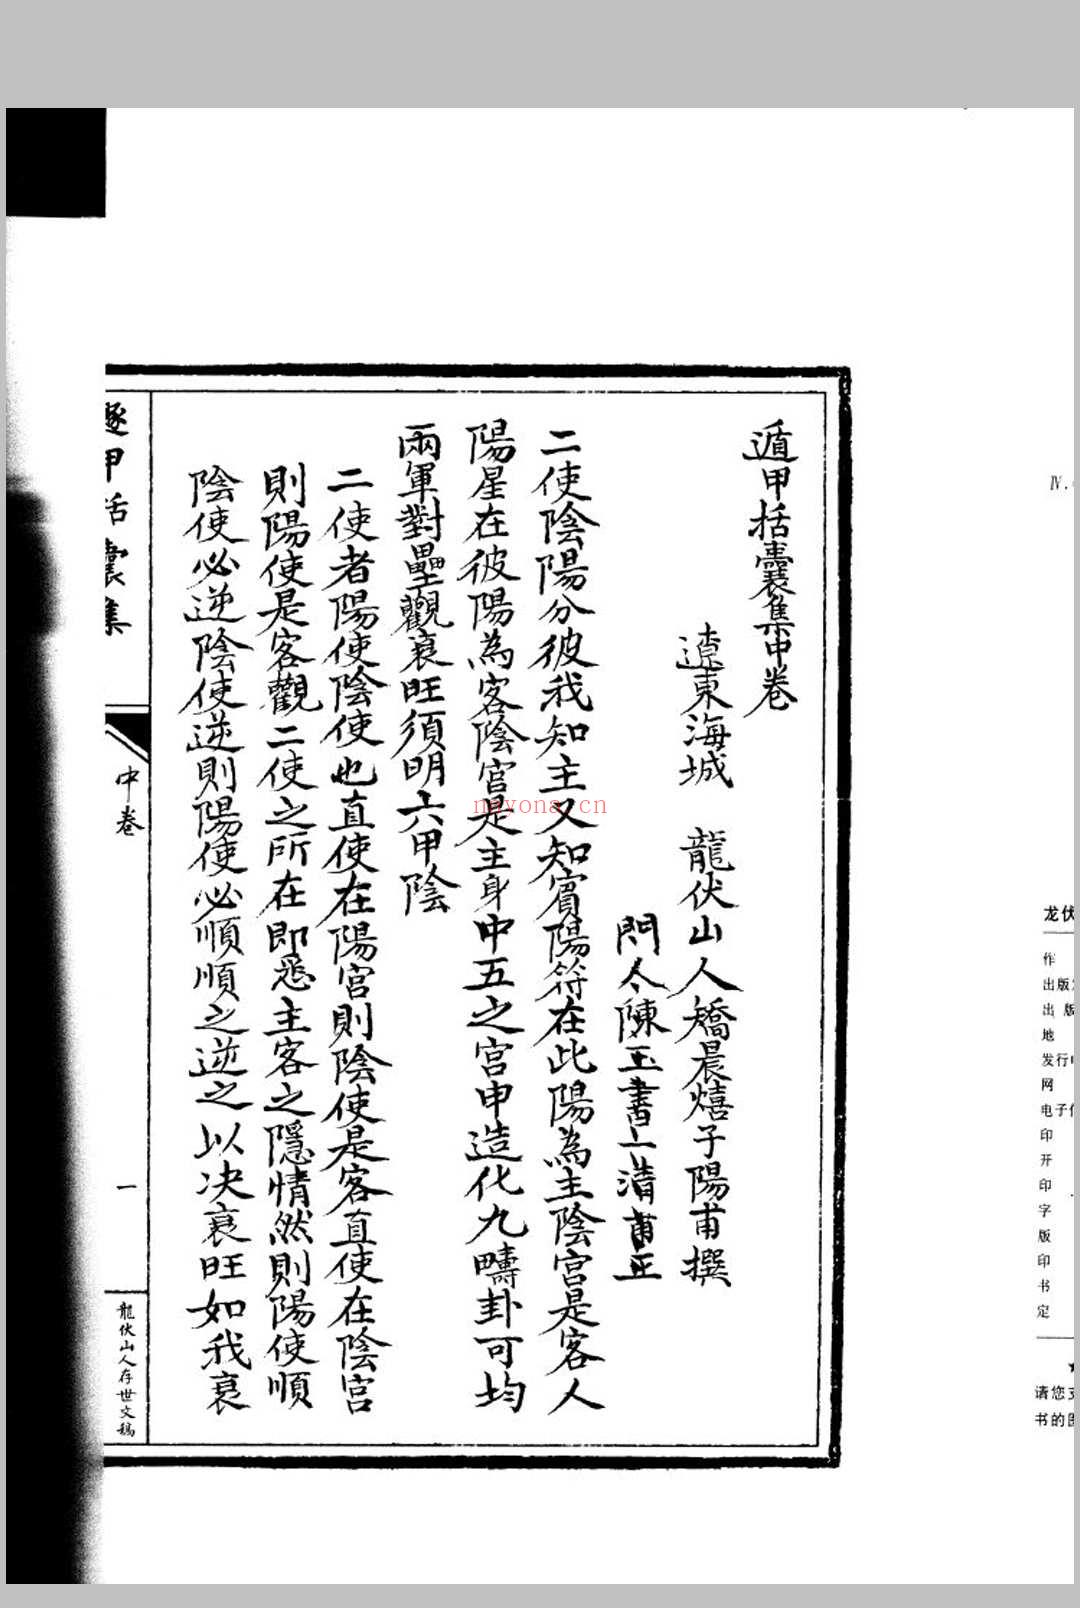 遁甲括囊集中卷
遼東海城　龍伏山人矯晨熺子陽甫撰
門人陳玉書上清甫正
二使陰陽分彼我知主又知賓陽符在此陽為主陰宮是客人
陽星在彼陽為客陰宮是主身中五之宮申造化九疇卦可均
兩軍對壘觀衰旺須明六甲陰
二使者陽使陰使也直使在陽宮則陰使是客直使在陰宮
則陽使是客觀二使之所在即悉主客之隱情然則陽使順
陰使必逆陰使逆則陽使必順順之逆之以决衰旺如我衰
遯甲括囊集
中卷
一
龍伏山人存世文稿
nayona.cn
Ⅳ.
龙伏
作
出版
出 版
地
发行
网
电子
印
开
印
字
版
印
书
定
请您支
书的图